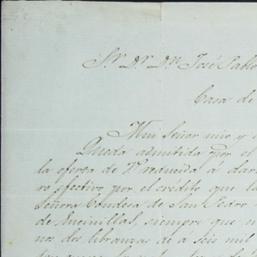 Sr. Dr. Dn. José Pablo
Casa de
Muy Señor mio y
Queda admitida por el
la oferta de V. reducida á dar
ro efectivo por el credito que la
Señora Condesa de San Pedro
de Encinillas, siempre que
nos des libranzas de a seis mil